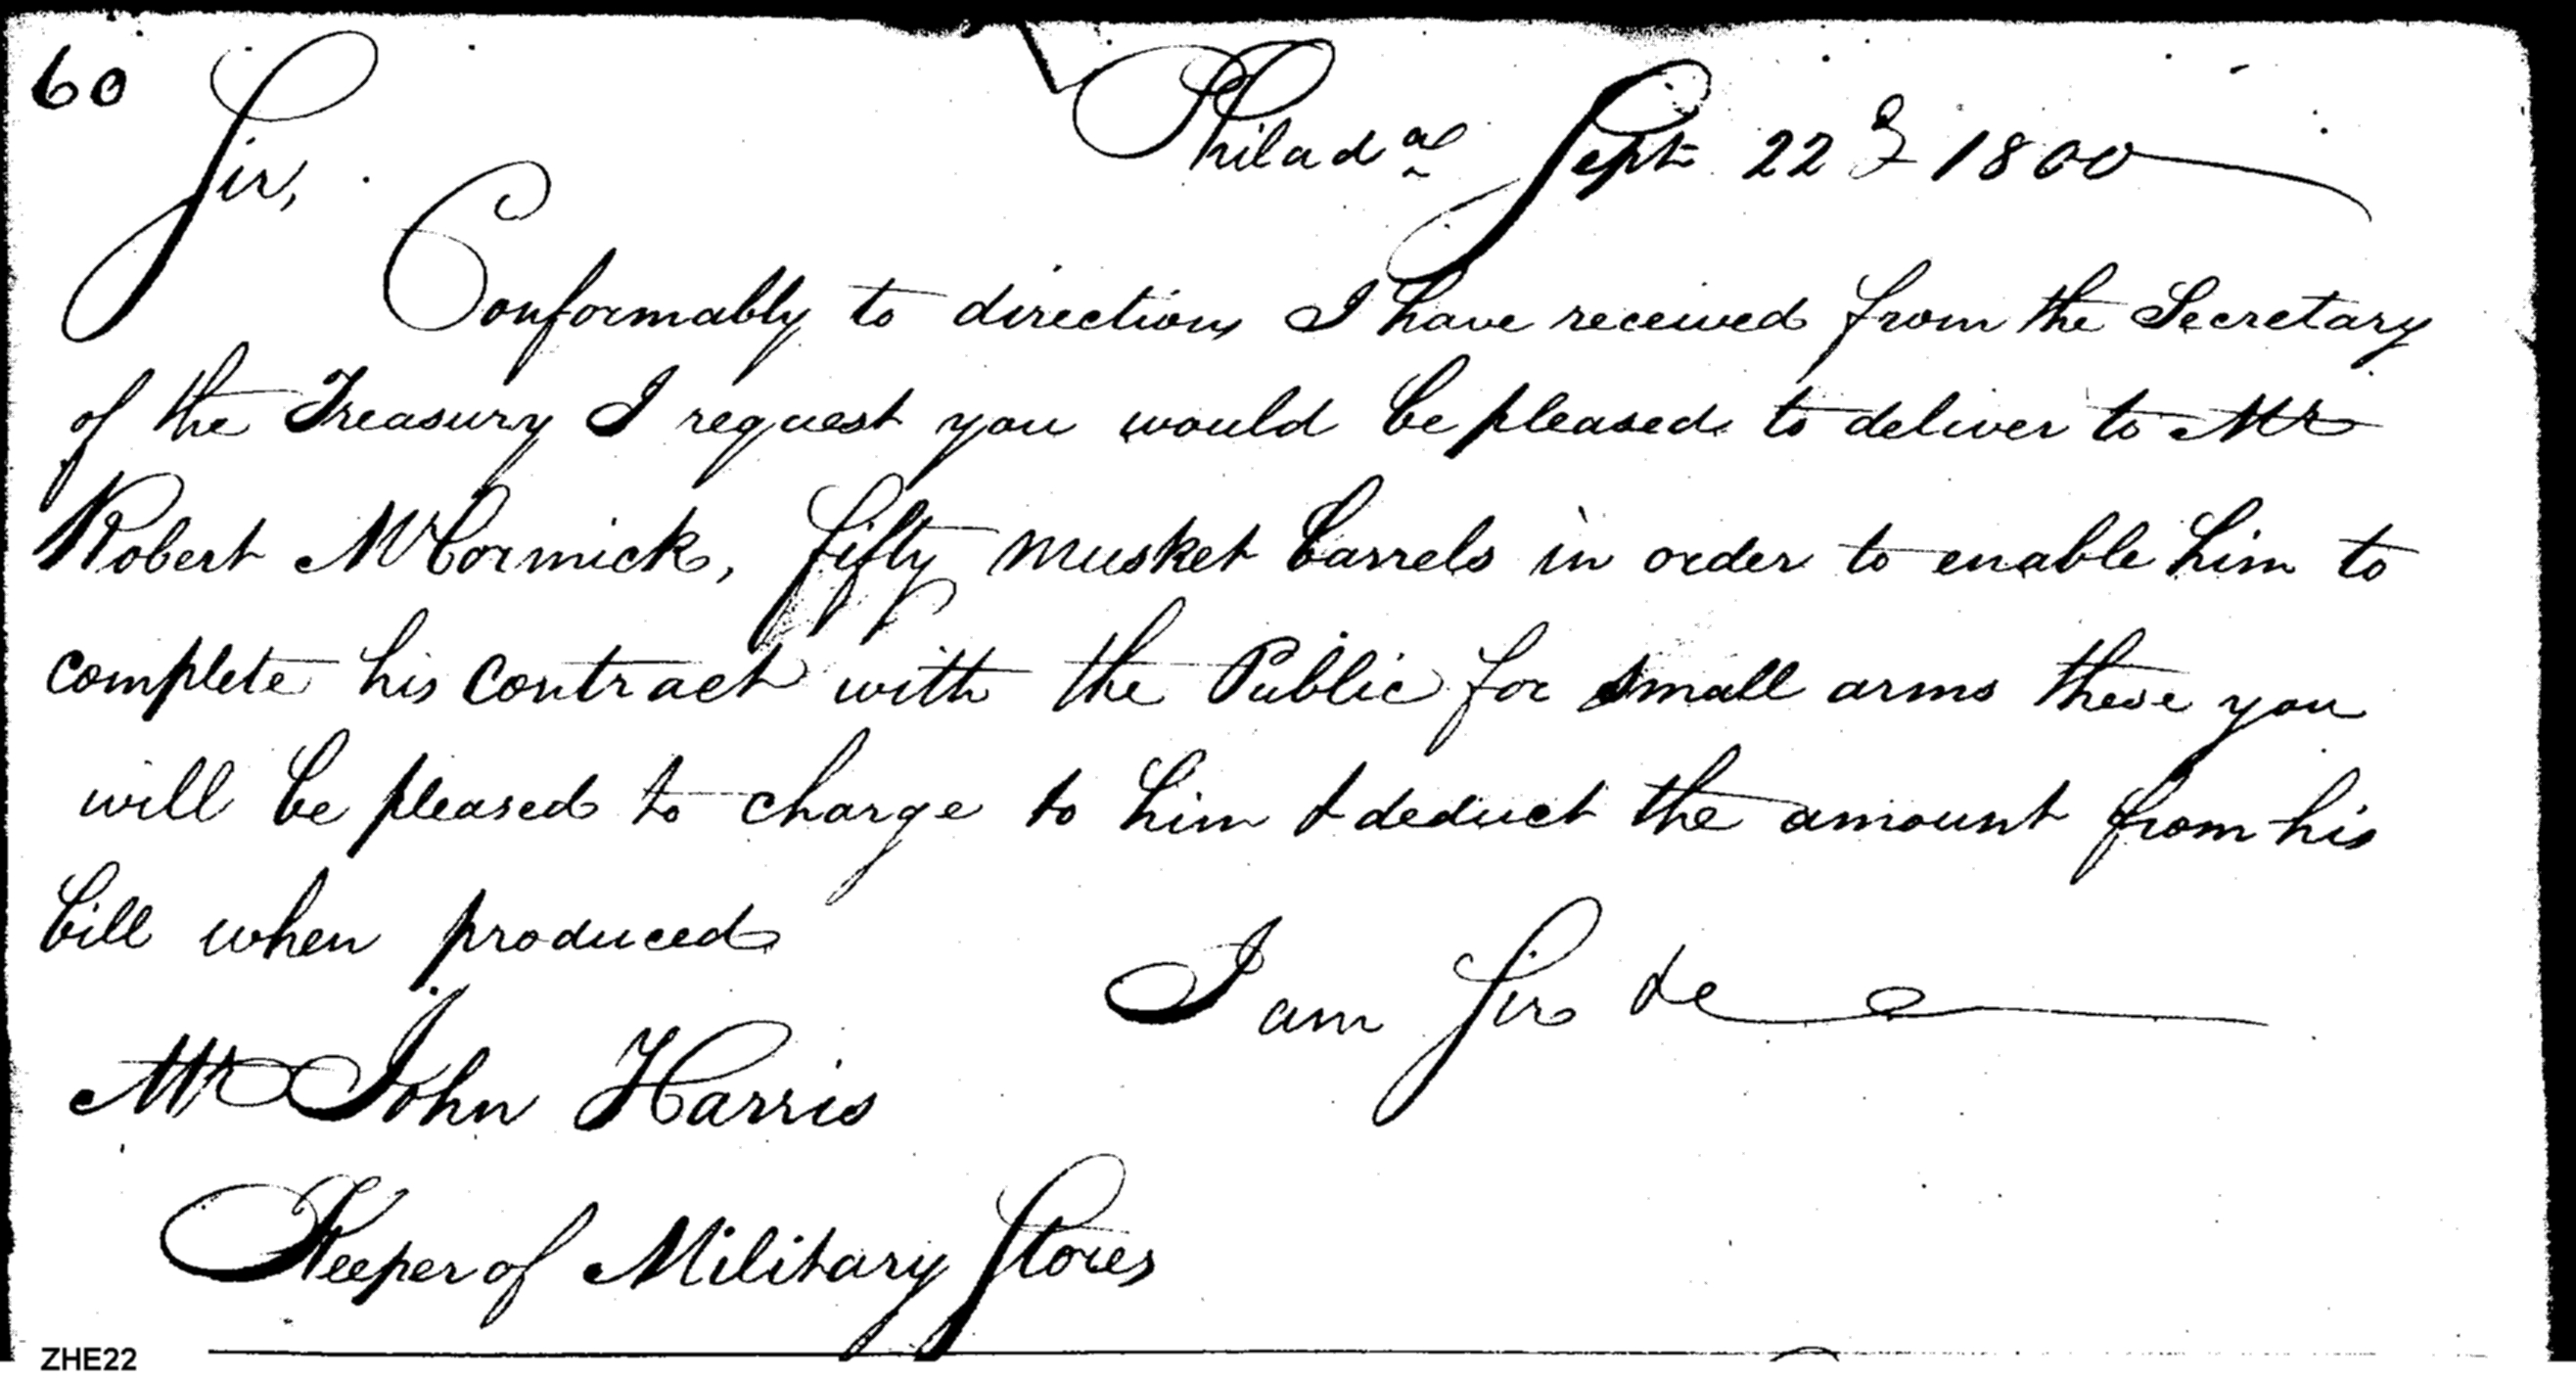 60
Philad.ª Sept 22d 1800
Sir,
Conformably to direction I have received from the Secretary
of the Treasury I request you would be pleased to deliver to Mr
Robert McCormick, fifty musket barrels in order to enable him to
complete his contract with the Public for small arms these you
will be pleased to charge to him & deduct the amount from his
bill when produced
I am Sir &c
Mr John Harris
Keeper of Military Stores
ZHE22